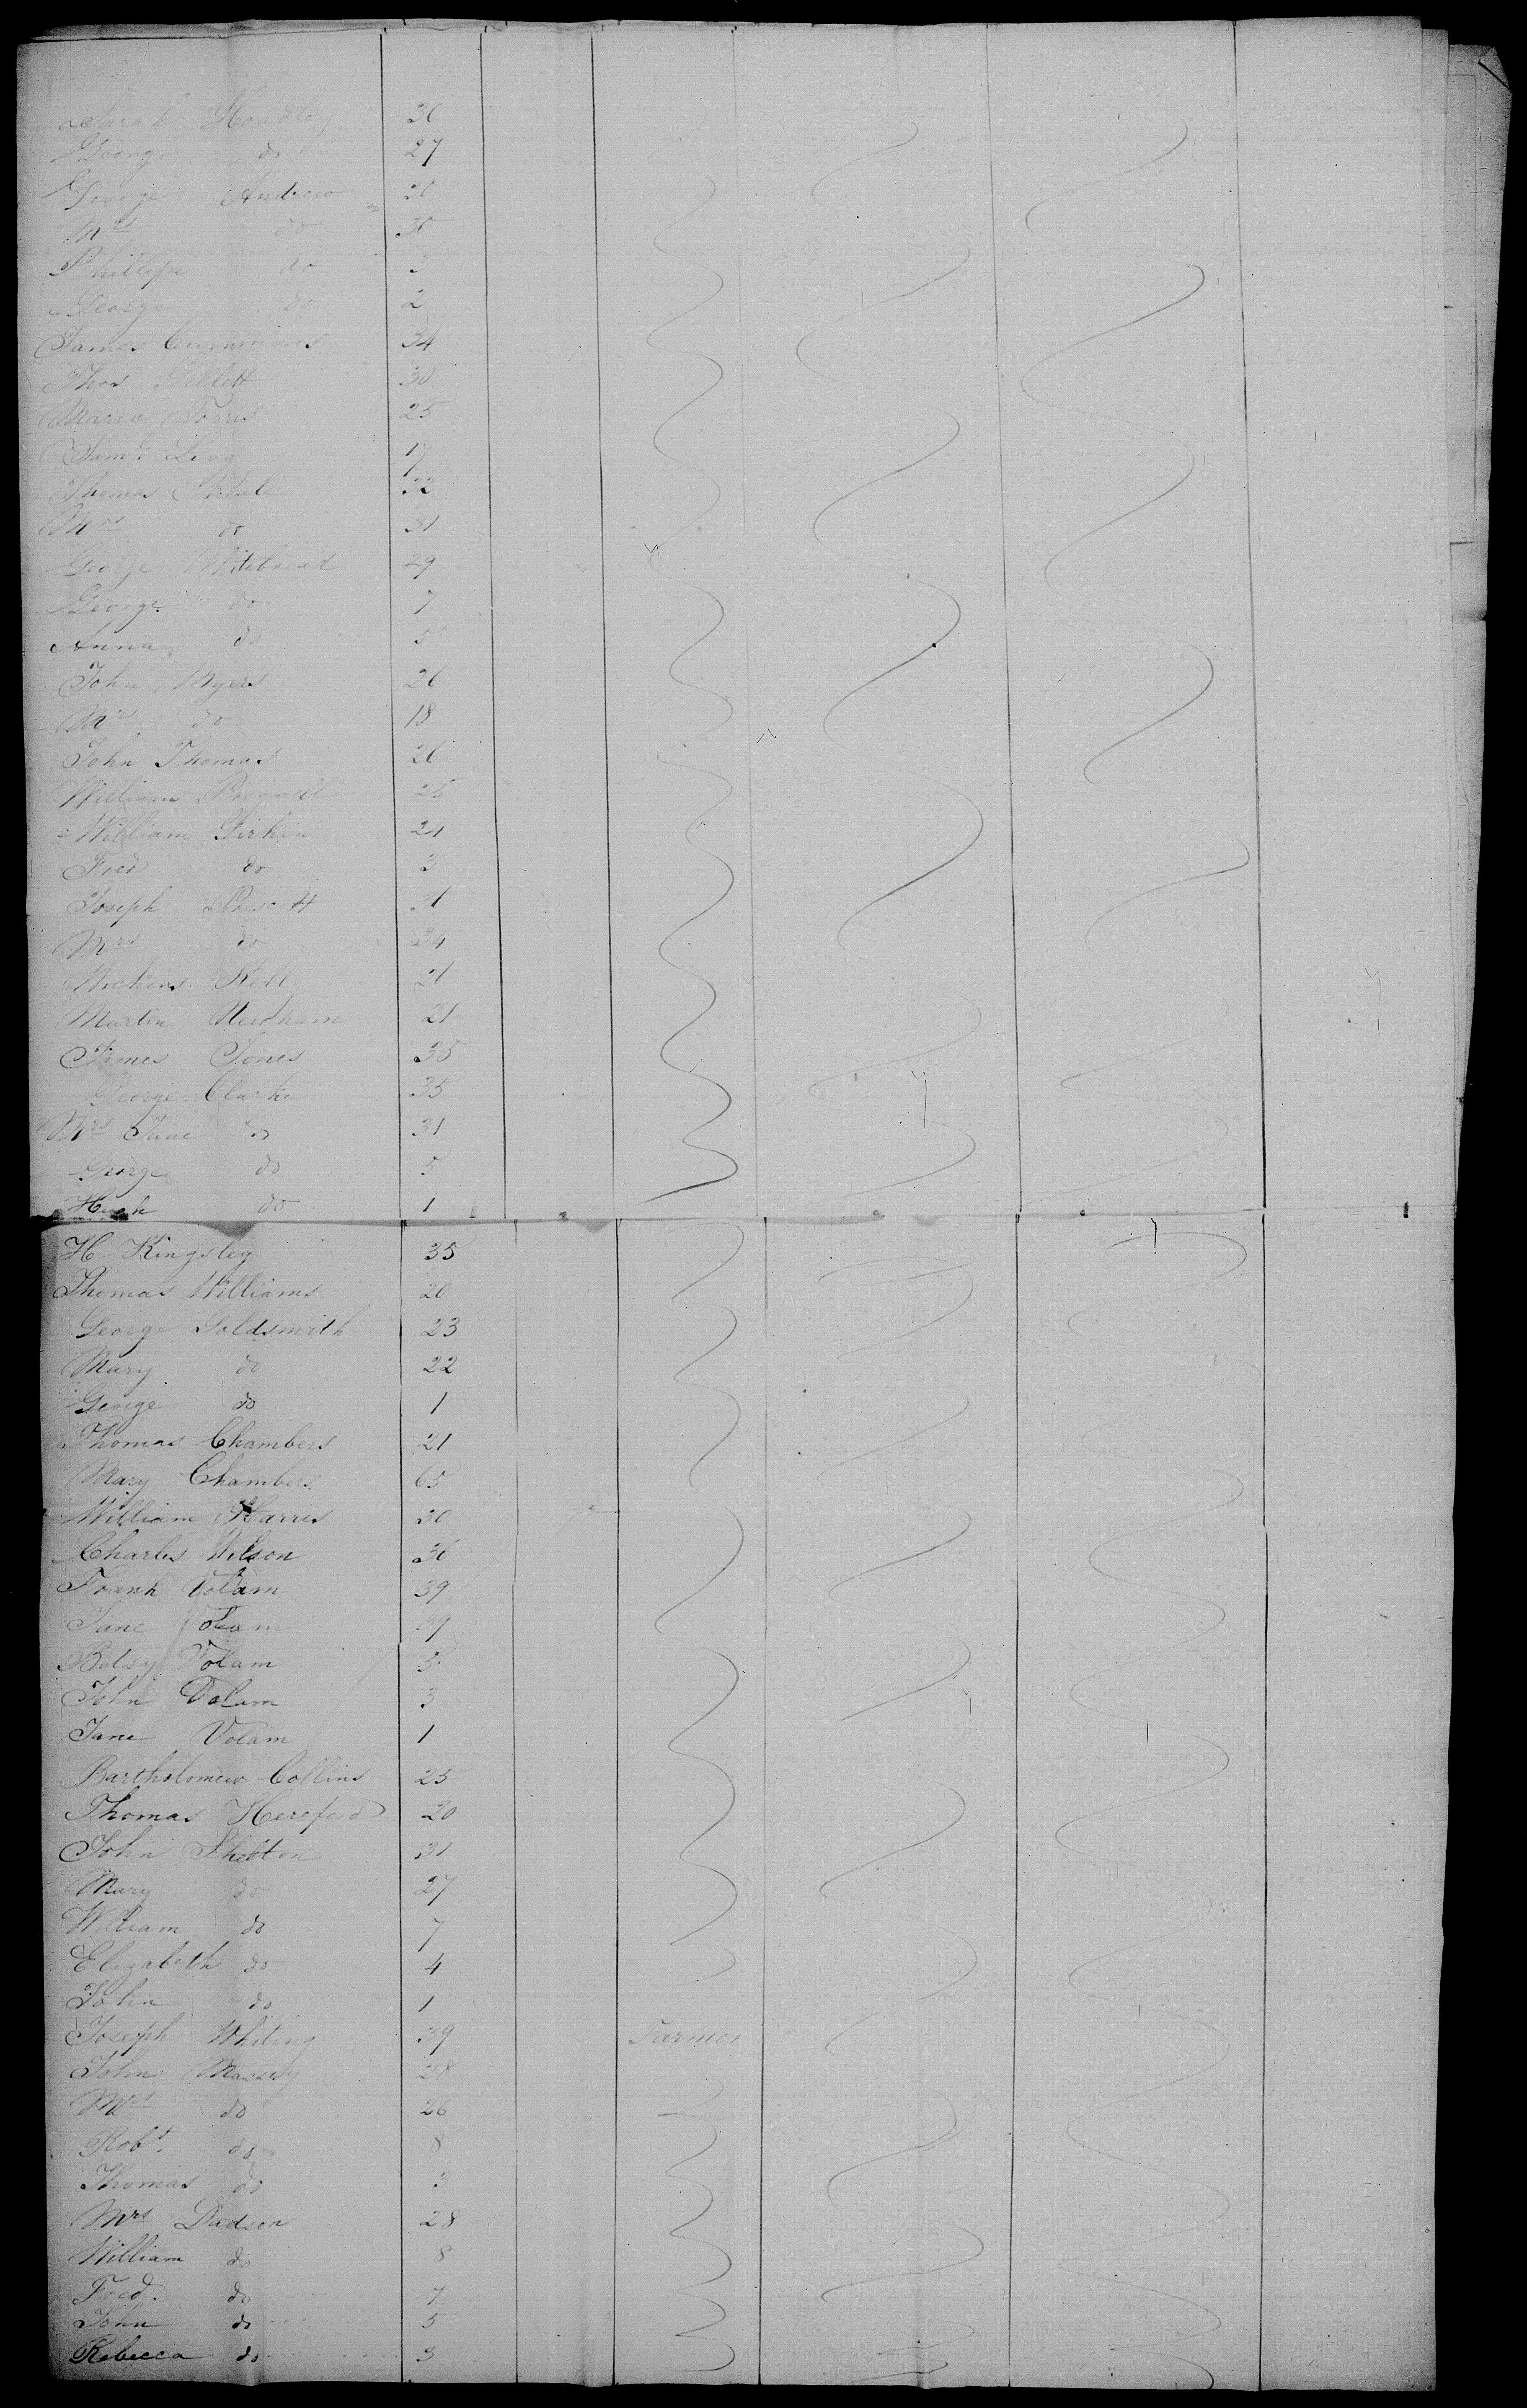 Sarah Hoadley 30
George do 27
George Andrew 30
Mrs do 30
Phillipa do 3
George do 2
James Cummins 34
Thos Gillett 30
Maria Torris 25
Saml. Levy 17
Thomas Neale 32
Mrs do 31
George Whitebread 29
George do 7
Anna do 5
John Myers 26
Mrs do 18
John Thomas 26
William 25
William Firkin 24
Fred do 3
Joseph Prescott 31
Mrs do 34
Kelly 21
Martin Needham 21
James Jones 35
George Clarke 35
Mrs Jane do 31
George do 5
Hugh do 1
H. Kingsley 35
Thomas Williams 20
George Goldsmith 23
Mary do 22
George do 1
Thomas Chambers 21
Mary Chambers 65
William Harris 30
Charles Wilson 36
Frank Volam 39
Jane Volam 39
Betsy Volam 5
John Volam 3
Jane Volam 1
Bartholomew Collins 25
Thomas Hereford 20
John Shelton 31
Mary do 27
William do 7
Elizabeth do 4
John do 1
Joseph Whiting 39 Farmer
John Massey 28
Mrs do 26
Robt. do 8
Thomas do 3
Mrs Dadson 28
William do 8
Fred. do 7
John do 5
Rebecca do 3